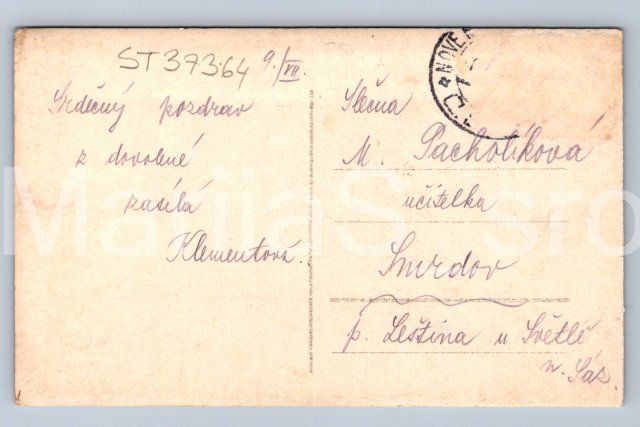 ST37364 9./VII.
Srdečný pozdrav
z dovolené
zasílá
Klementová.
NOVÉ
Slečna
M. Pacholíková
učitelka
Smrdov
p. Leština u Světlé
n. Sáz.